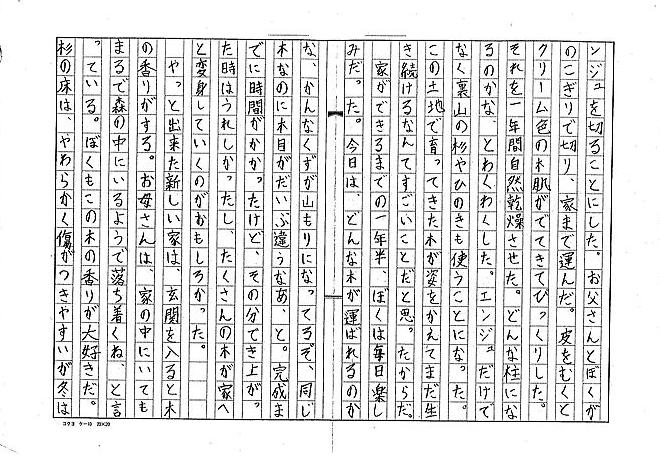 ンジュを切ることにした。お父さんとぼくが
のこぎりで切り、家まで運んだ。皮をむくと
クリーム色の木肌がでてきてびっくりした。
それを一年間自然乾燥させた。どんな柱にな
るのかな、とわくわくした。エンジュだけで
なく裏山の杉やひのきも使うことになった。
この土地で育ってきた木が姿をかえてまだ生
き続けるなんてすごいことだと思ったからだ。
家ができるまでの一年半、ぼくは毎日楽し
みだった。今日は、どんな木が運ばれるのか
な、かんなくずが山もりになってるぞ、同じ
木なのに木目がだいぶ違うなあ、と。完成ま
でに時間がかかったけど、その分でき上がっ
た時はうれしかったし、たくさんの木が家へ
と変身していくのがおもしろかった。
やっと出来た新しい家は、玄関を入ると木
の香りがする。お母さんは、家の中にいても
まるで森の中にいるようで落ち着くね、と言
っている。ぼくもこの木の香りが大好きだ。
杉の床は、やわらかく傷がつきやすいが冬は
コクヨ ケ-10 20×20